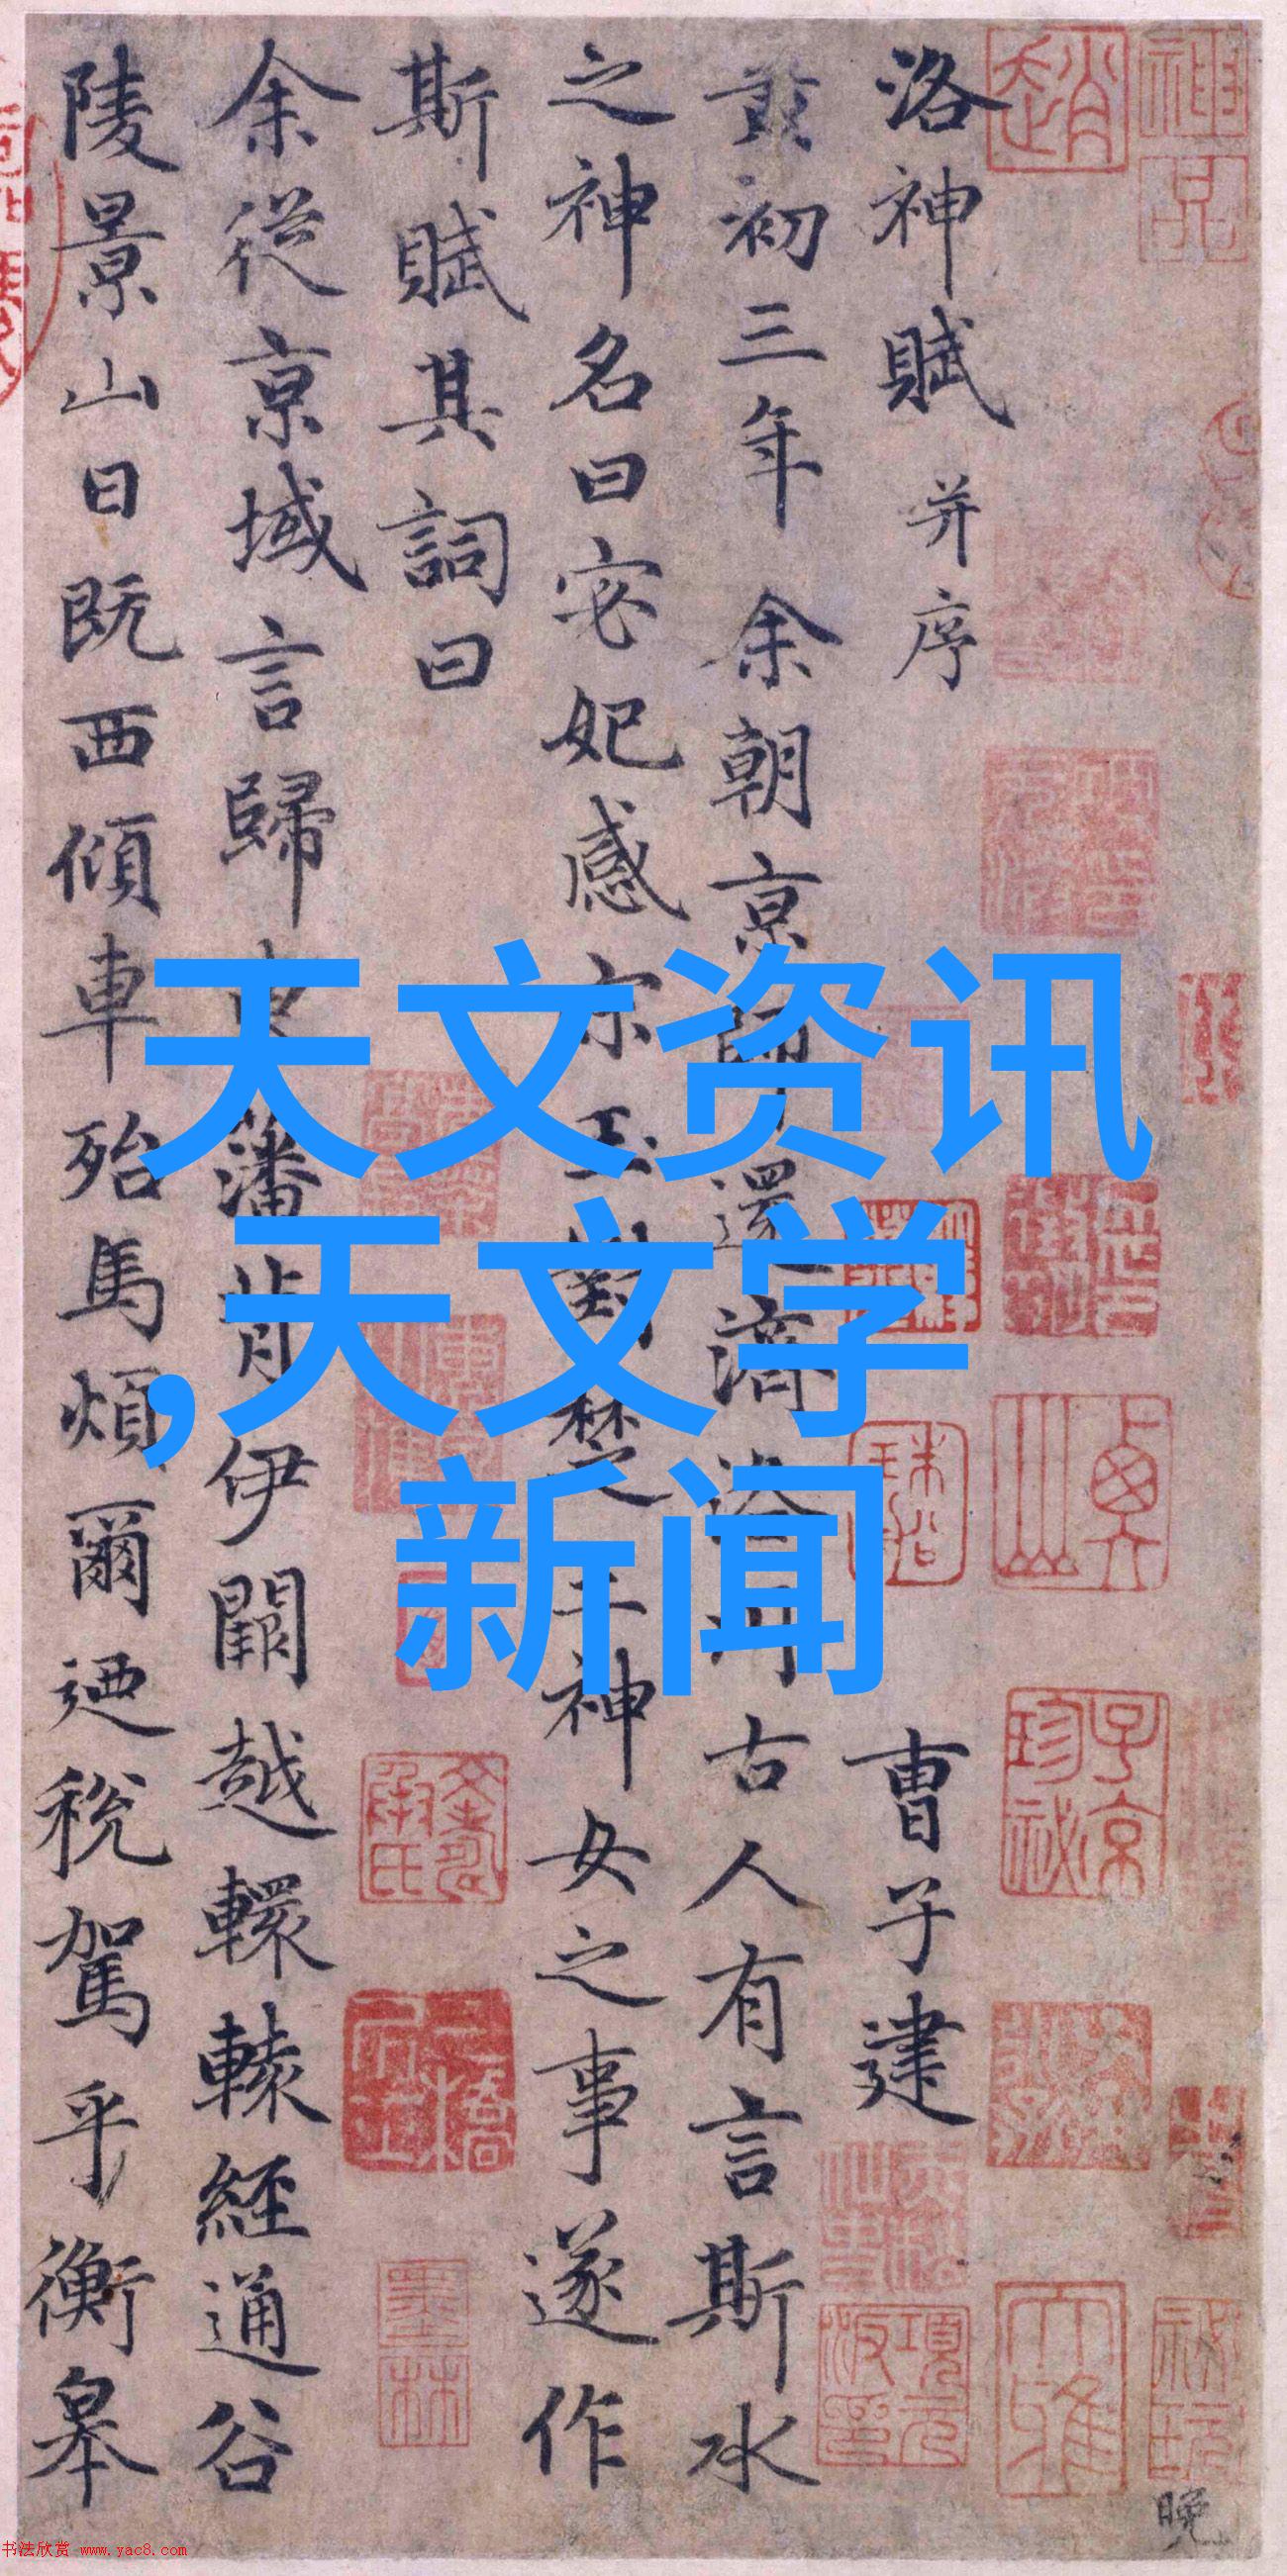 洛神賦 并序
曹子建
黄初三年余朝京師還濟洛川古人有言斯水
之神名曰宓妃感宋玉對楚王神女之事遂作
斯賦其詞曰
余從京域言歸東藩背伊闕越轘轅經通谷
陵景山日既西傾車殆馬煩爾迺稅駕乎衡皋
天文资讯
,天文学
新闻
趙
神品
子京
珍祕
墨林
項元
晚
书法欣赏 www.yac8.com